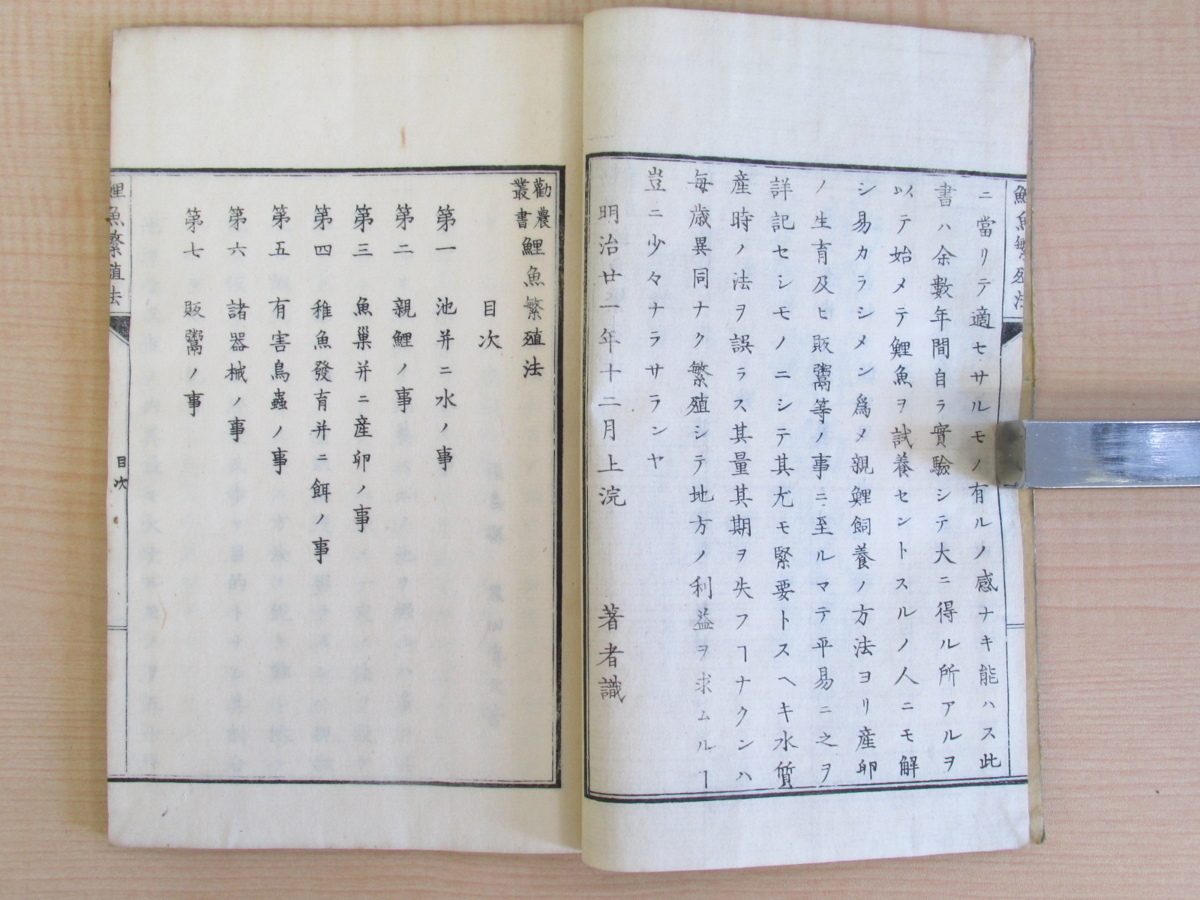 鯉魚繁殖法
ニ當リテ適セサルモノ有ルノ感ナキ能ハス此
書ハ余數年間自ラ實驗シテ大ニ得ル所アルヲ
以テ始メテ鯉魚ヲ試養セントスルノ人ニモ解
シ易カラシメン爲メ親鯉飼養ノ方法ヨリ產卵
ノ生育及ヒ販鬻等ノ事ニ至ルマテ平易ニ之ヲ
詳記セシモノニシテ其尤モ緊要トスヘキ水質
產時ノ法ヲ誤ラス其量其期ヲ失フヿナクンハ
每歲異同ナク繁殖シテ地方ノ利益ヲ求ムルヿ
豈ニ少々ナラサランヤ
明治廿一年十二月上浣 著者識
勸農叢書鯉魚繁殖法
目次
第一 池并ニ水ノ事
第二 親鯉ノ事
第三 魚巢并ニ產卵ノ事
第四 稚魚發育并ニ餌ノ事
第五 有害鳥蟲ノ事
第六 諸器械ノ事
第七 販鬻ノ事
鯉魚繁殖法 目次